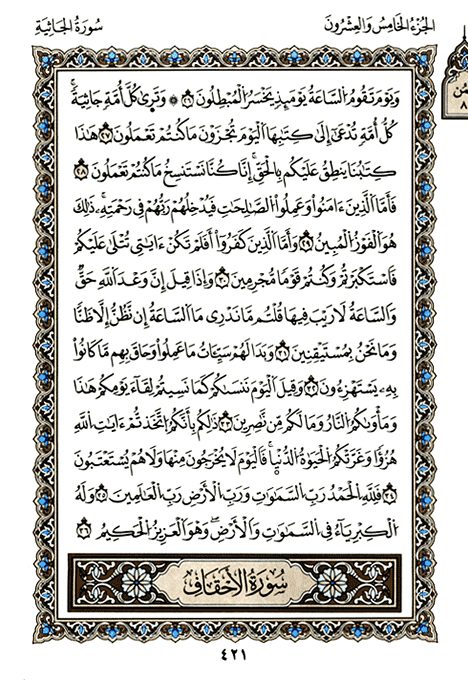 الجُزْءُ الخَامِسُ وَالعِشْرُونَ
سُورَةُ الجَاثِيَةِ
وَيَوْمَ تَقُومُ السَّاعَةُ يَوْمَئِذٍ يَخْسَرُ الْمُبْطِلُونَ ٢٦ وَتَرَىٰ كُلَّ أُمَّةٍ جَاثِيَةً ۚ
كُلُّ أُمَّةٍ تُدْعَىٰ إِلَىٰ كِتَٰبِهَا الْيَوْمَ تُجْزَوْنَ مَا كُنتُمْ تَعْمَلُونَ ٢٧ هَٰذَا
كِتَٰبُنَا يَنطِقُ عَلَيْكُم بِالْحَقِّ ۚ إِنَّا كُنَّا نَسْتَنسِخُ مَا كُنتُمْ تَعْمَلُونَ ٢٨
فَأَمَّا الَّذِينَ ءَامَنُوا۟ وَعَمِلُوا۟ الصَّٰلِحَٰتِ فَيُدْخِلُهُمْ رَبُّهُمْ فِى رَحْمَتِهِۦ ۚ ذَٰلِكَ
هُوَ الْفَوْزُ الْمُبِينُ ٢٩ وَأَمَّا الَّذِينَ كَفَرُوٓا۟ أَفَلَمْ تَكُنْ ءَايَٰتِى تُتْلَىٰ عَلَيْكُمْ
فَاسْتَكْبَرْتُمْ وَكُنتُمْ قَوْمًا مُّجْرِمِينَ ٣٠ وَإِذَا قِيلَ إِنَّ وَعْدَ اللَّهِ حَقٌّ
وَالسَّاعَةُ لَا رَيْبَ فِيهَا قُلْتُم مَّا نَدْرِى مَا السَّاعَةُ إِن نَّظُنُّ إِلَّا ظَنًّا
وَمَا نَحْنُ بِمُسْتَيْقِنِينَ ٣١ وَبَدَا لَهُمْ سَيِّـَٔاتُ مَا عَمِلُوا۟ وَحَاقَ بِهِم مَّا كَانُوا۟
بِهِۦ يَسْتَهْزِءُونَ ٣٢ وَقِيلَ الْيَوْمَ نَنسَىٰكُمْ كَمَا نَسِيتُمْ لِقَآءَ يَوْمِكُمْ هَٰذَا
وَمَأْوَىٰكُمُ النَّارُ وَمَا لَكُم مِّن نَّٰصِرِينَ ٣٣ ذَٰلِكُم بِأَنَّكُمُ اتَّخَذْتُمْ ءَايَٰتِ اللَّهِ
هُزُوًا وَغَرَّتْكُمُ الْحَيَوٰةُ الدُّنْيَا ۚ فَالْيَوْمَ لَا يُخْرَجُونَ مِنْهَا وَلَا هُمْ يُسْتَعْتَبُونَ
٣٤ فَلِلَّهِ الْحَمْدُ رَبِّ السَّمَٰوَٰتِ وَرَبِّ الْأَرْضِ رَبِّ الْعَٰلَمِينَ ٣٥ وَلَهُ
الْكِبْرِيَآءُ فِى السَّمَٰوَٰتِ وَالْأَرْضِ ۖ وَهُوَ الْعَزِيزُ الْحَكِيمُ ٣٦
سُورَةُ الأَحْقَافِ
٤٢١